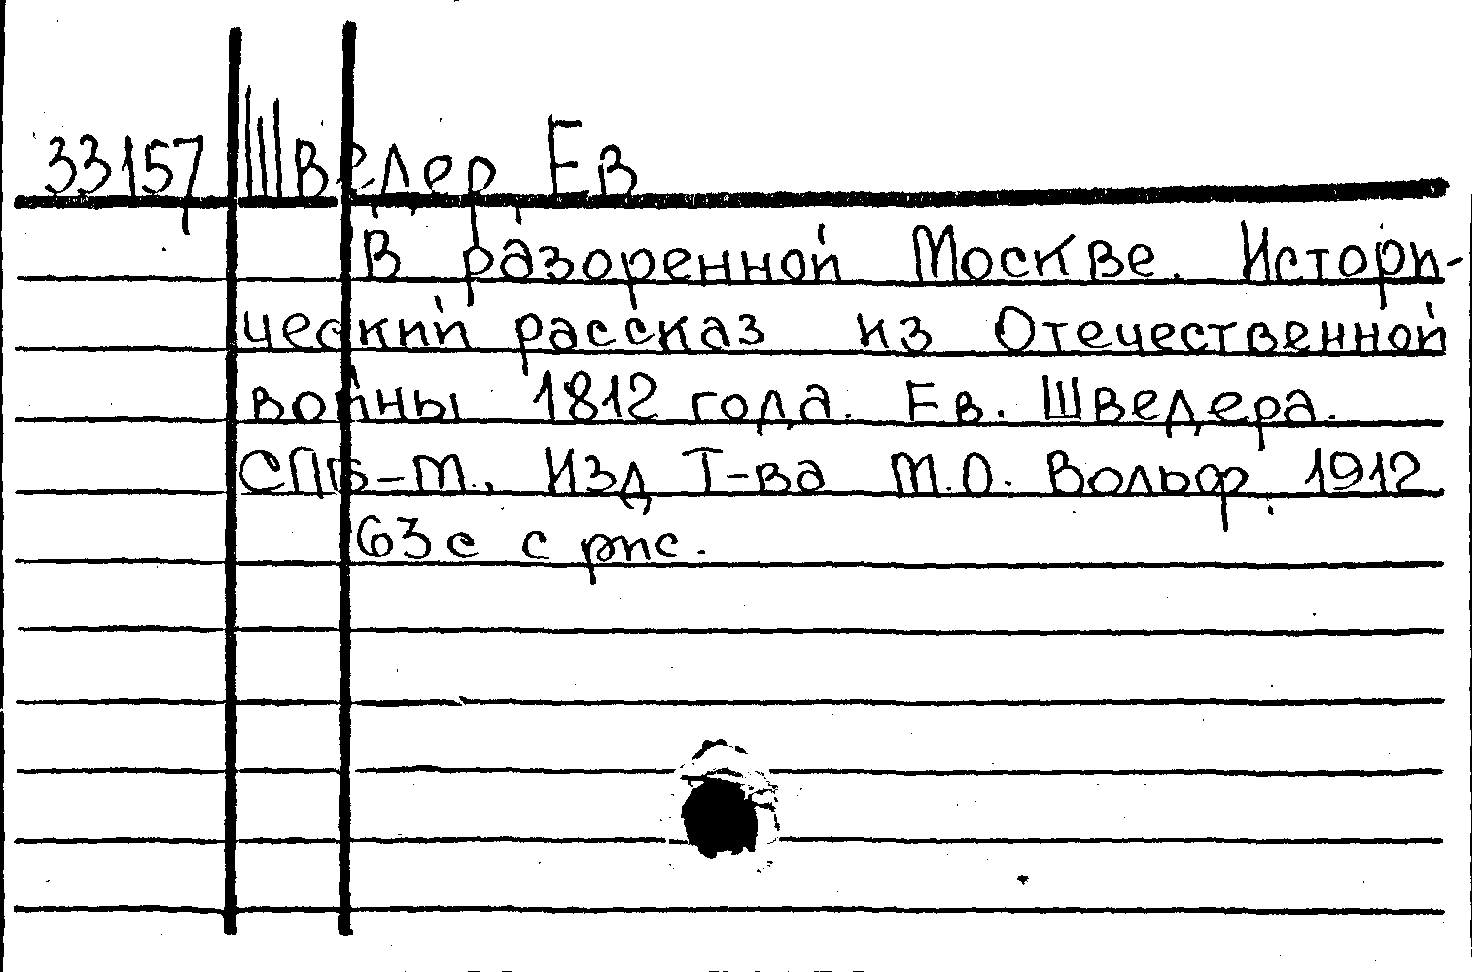 33157 Шведер Ев
В разоренной Москве. Истори-
ческий рассказ из Отечественной
войны 1812 года. Ев. Шведера.
СПБ-М., Изд Т-ва М.О. Вольф, 1912
63с с рис.